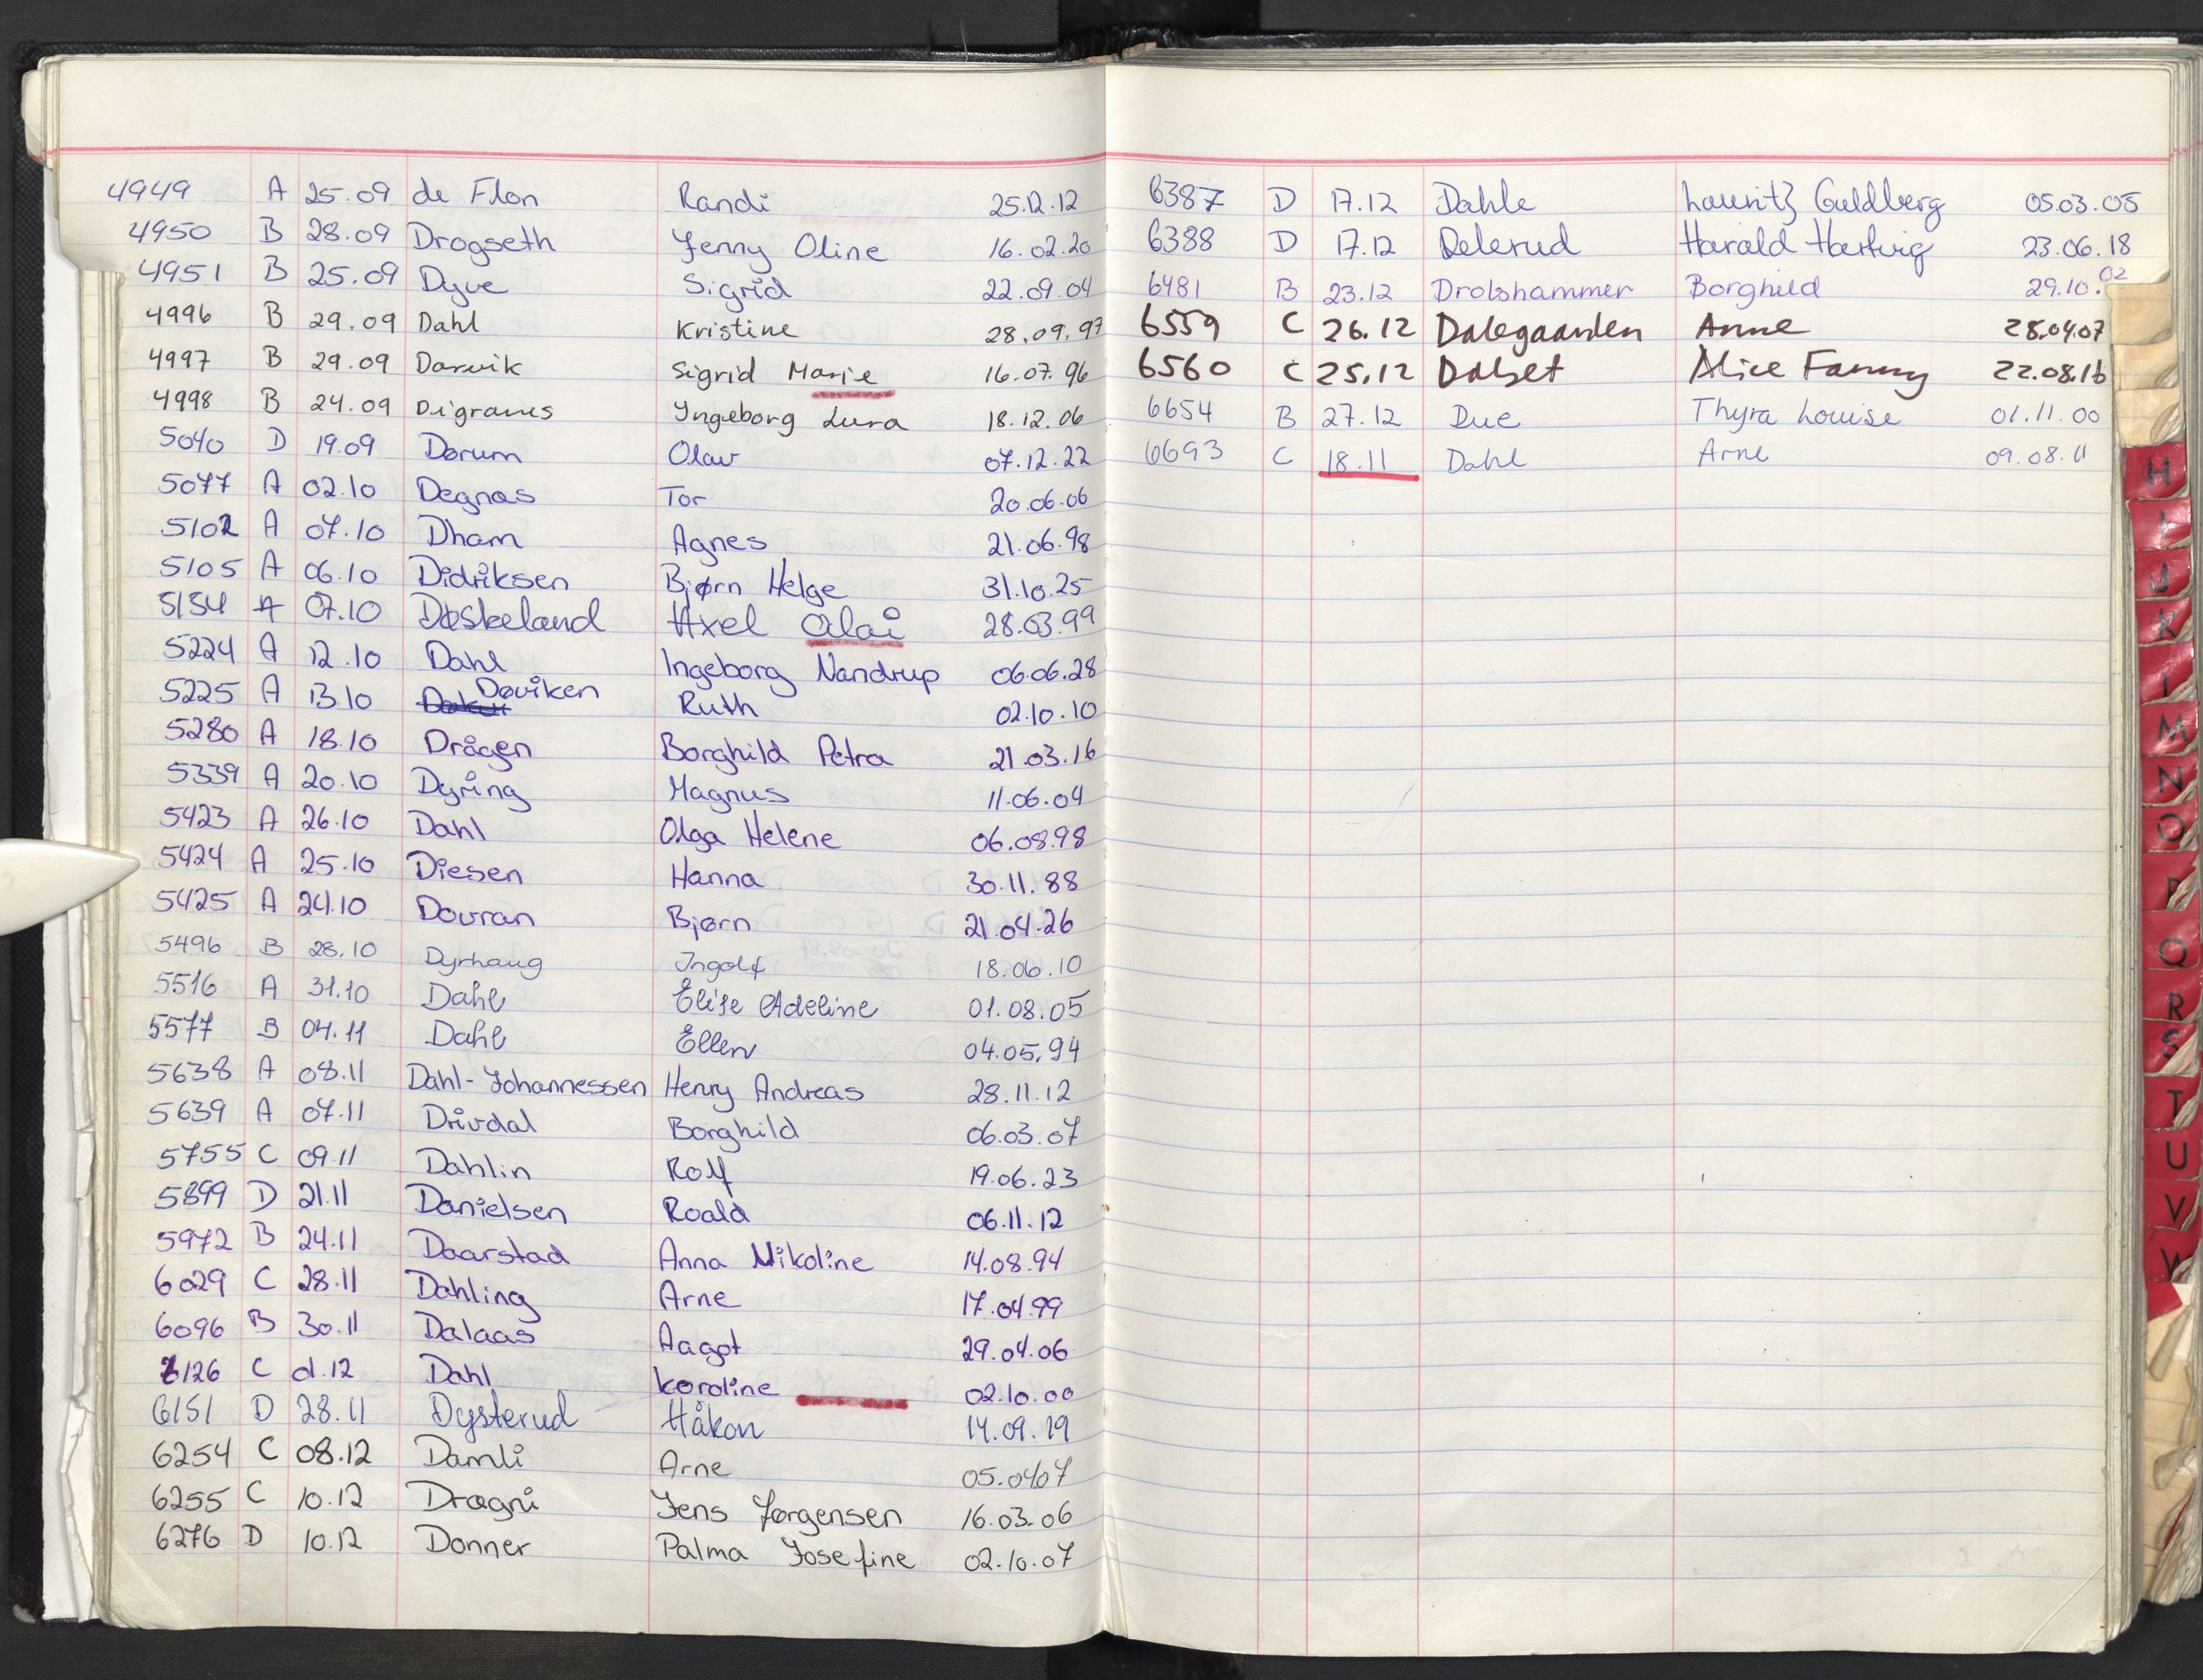 4949 A 25.09 de Flon Randi 25.12.12
4950 B 28.09 Drogseth Jenny Oline 16.02.20
4951 B 25.09 Dyve Sigrid 22.09.04
4996 B 29.09 Dahl Kristine 28.09.97
4997 B 29.09 Darvik Sigrid Marie 16.07.96
4998 B 24.09 Digranes Ingeborg Lura 18.12.06
5040 D 19.09 Dørum Olav 07.12.22
5077 A 02.10 Degnæs Tor 20.06.06
5102 A 07.10 Dham Agnes 21.06.98
5105 A 06.10 Didriksen Bjørn Helge 31.10.25
5154 A 07.10 Døskeland Axel Olai 28.03.99
5224 A 12.10 Dahl Ingeborg Nandrup 06.06.28
5225 A 13.10 Døviken Ruth 02.10.10
5280 A 18.10 Drågen Borghild Petra 21.03.16
5339 A 20.10 Dyring Magnus 11.06.04
5423 A 26.10 Dahl Olga Helene 06.08.98
5424 A 25.10 Diesen Hanna 30.11.88
5425 A 24.10 Dovran Bjørn 21.04.26
5496 B 28.10 Dyrhaug Ingolf 18.06.10
5516 A 31.10 Dahl Elise Adeline 01.08.05
5577 B 04.11 Dahl Ellen 04.05.94
5638 A 08.11 Dahl-Johannessen Henry Andreas 28.11.12
5639 A 07.11 Drivdal Borghild 06.03.07
5755 C 09.11 Dahlin Rolf 19.06.23
5899 D 21.11 Danielsen Roald 06.11.12
5972 B 24.11 Daarstad Anna Nikoline 14.08.94
6029 C 28.11 Dahling Arne 17.04.99
6096 B 30.11 Dalaas Aagot 29.04.06
6126 C 01.12 Dahl Karoline 02.10.00
6151 D 28.11 Dysterud Håkon 14.09.19
6254 C 08.12 Damli Arne 05.0407
6255 C 10.12 Drægni Jens Jørgensen 16.03.06
6276 D 10.12 Donner Palma Josefine 02.10.07
6387 D 17.12 Dahle Lauritz Guldberg 05.03.05
6388 D 17.12 Delerud Harald Hartvig 23.06.18
6481 B 23.12 Drolshammer Borghild 29.10.02
6559 C 26.12 Dalegaarden Anne 28.04.07
6560 C 25.12 Dalset Alice Fanny 22.08.16
6654 B 27.12 Due Thyra Louise 01.11.00
6693 C 18.11 Dahl Arne 09.08.11
H
I
J
K
L
M
N
O
P
Q
R
S
T
U
V
W